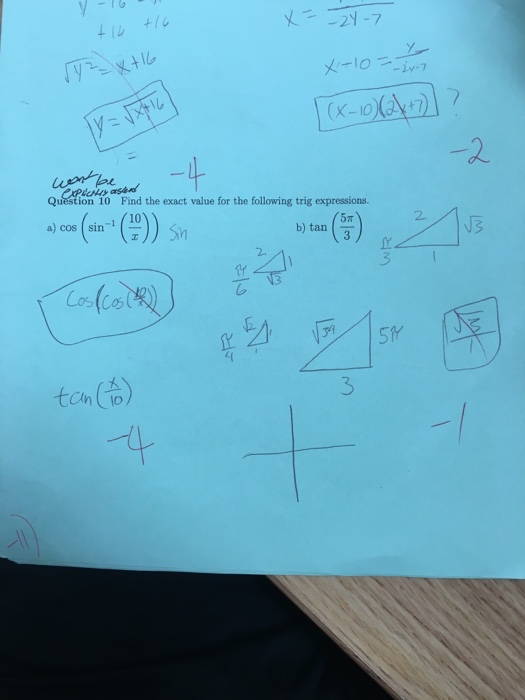 +16 +16
x = -2y-7
√y² = x+16
x-10 = y/-2y-7
y = √x+16
(x-10)(2x+7) ?
=
-4
-2
want be
Question 10 Find the exact value for the following trig expressions.
a) cos (sin⁻¹ (10/x)) Sin
b) tan (5π/3)
2 √3
π/3 1
2 1
π/6 √3
Cos(cos(10/x))
√2 1
π/4 1
√34 5π
3
√3/1
tan(x/10)
-4
-1
-11